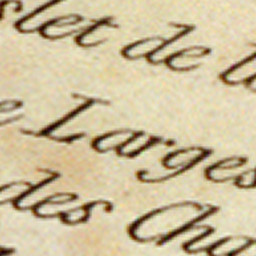 slet de
Larges
des Cha